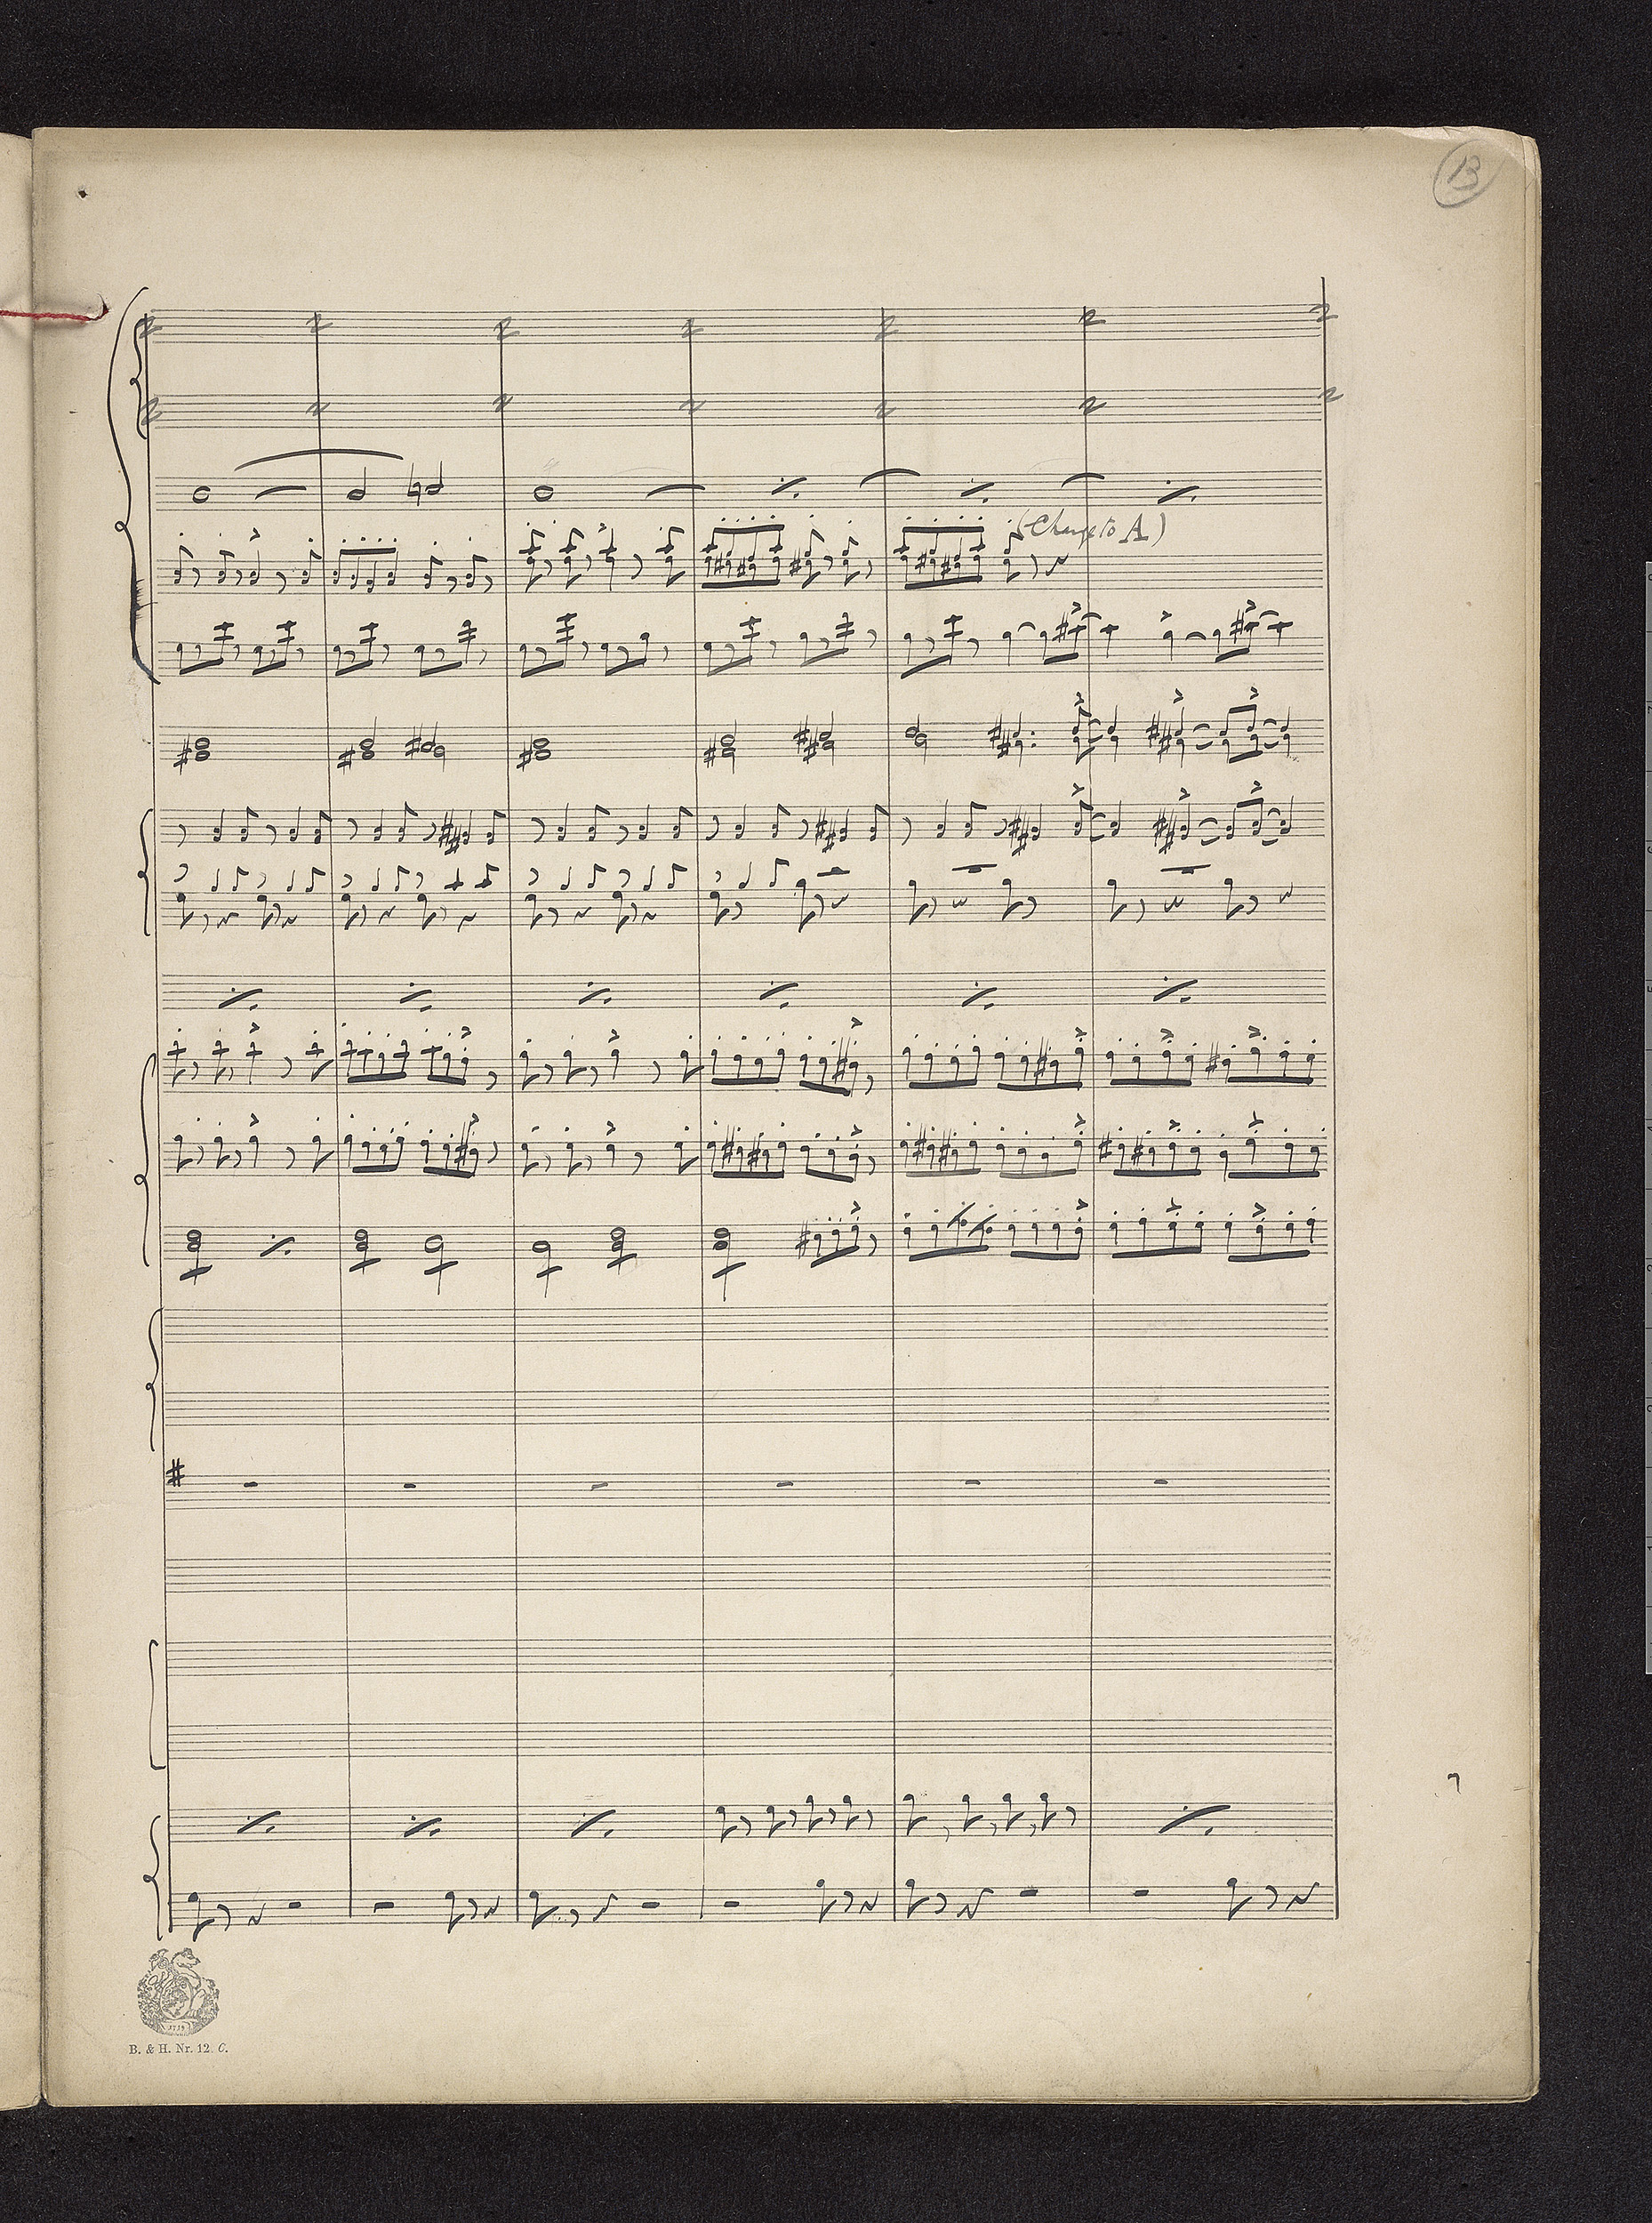 13
(Change to A)
1719
B. & H. Nr. 12. C.